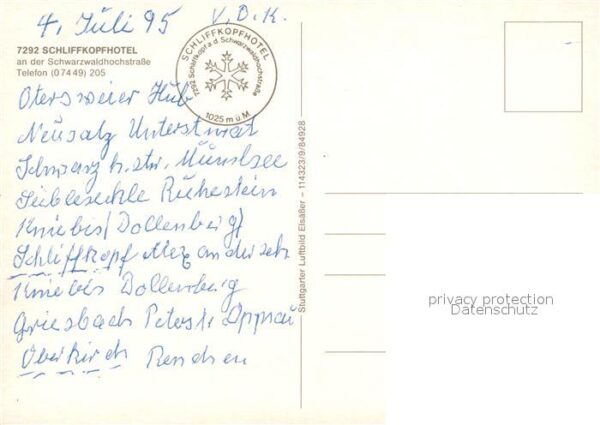 4. Juli 95 V.d.K.
7292 SCHLIFFKOPFHOTEL
an der Schwarzwaldhochstraße
Telefon (07449) 205
SCHLIFFKOPFHOTEL
7292 Schliffkopf a.d. Schwarzwaldhochstraße
1025 m ü M
Ottersweier Hub
Neusatz Unterstmat
Mummelsee
Ruhestein
Kniebis/Dollenberg/
Schliffkopf
Kniebis Dollenberg
Griesbach Peterst. Oppnau
Oberkirch Renchen
Stuttgarter Luftbild Elsäßer – 114323/9/84928
privacy protection
Datenschutz